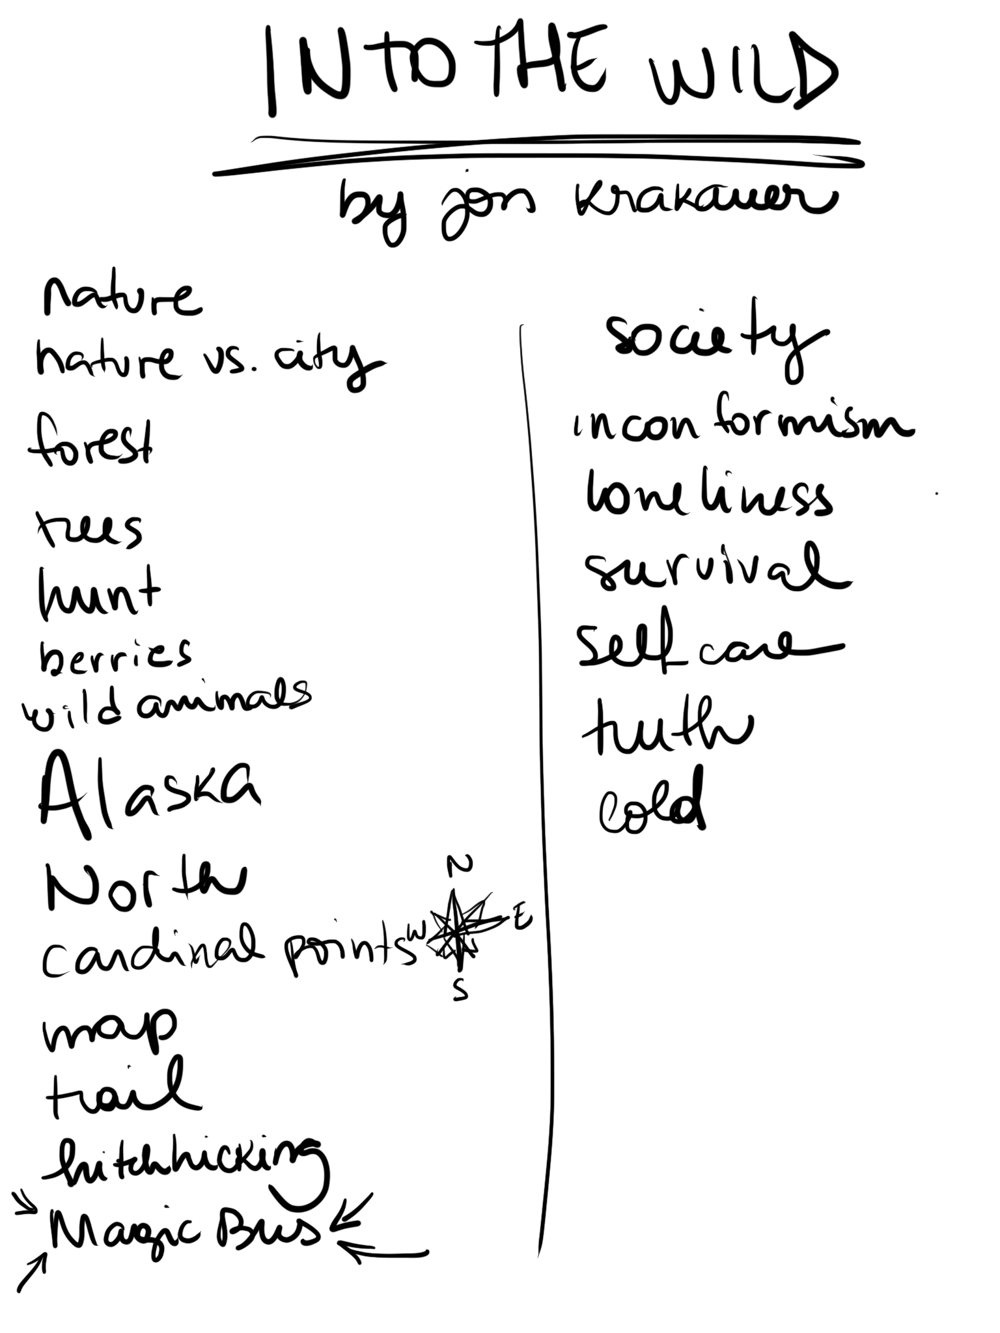 INTO THE WILD
by jon Krakauer
nature
nature vs. city
forest
trees
hunt
berries
wild animals
Alaska
North
cardinal points
N
W
E
S
map
trail
hitchhicking
Magic Bus
society
inconformism
loneliness
survival
self care
truth
cold